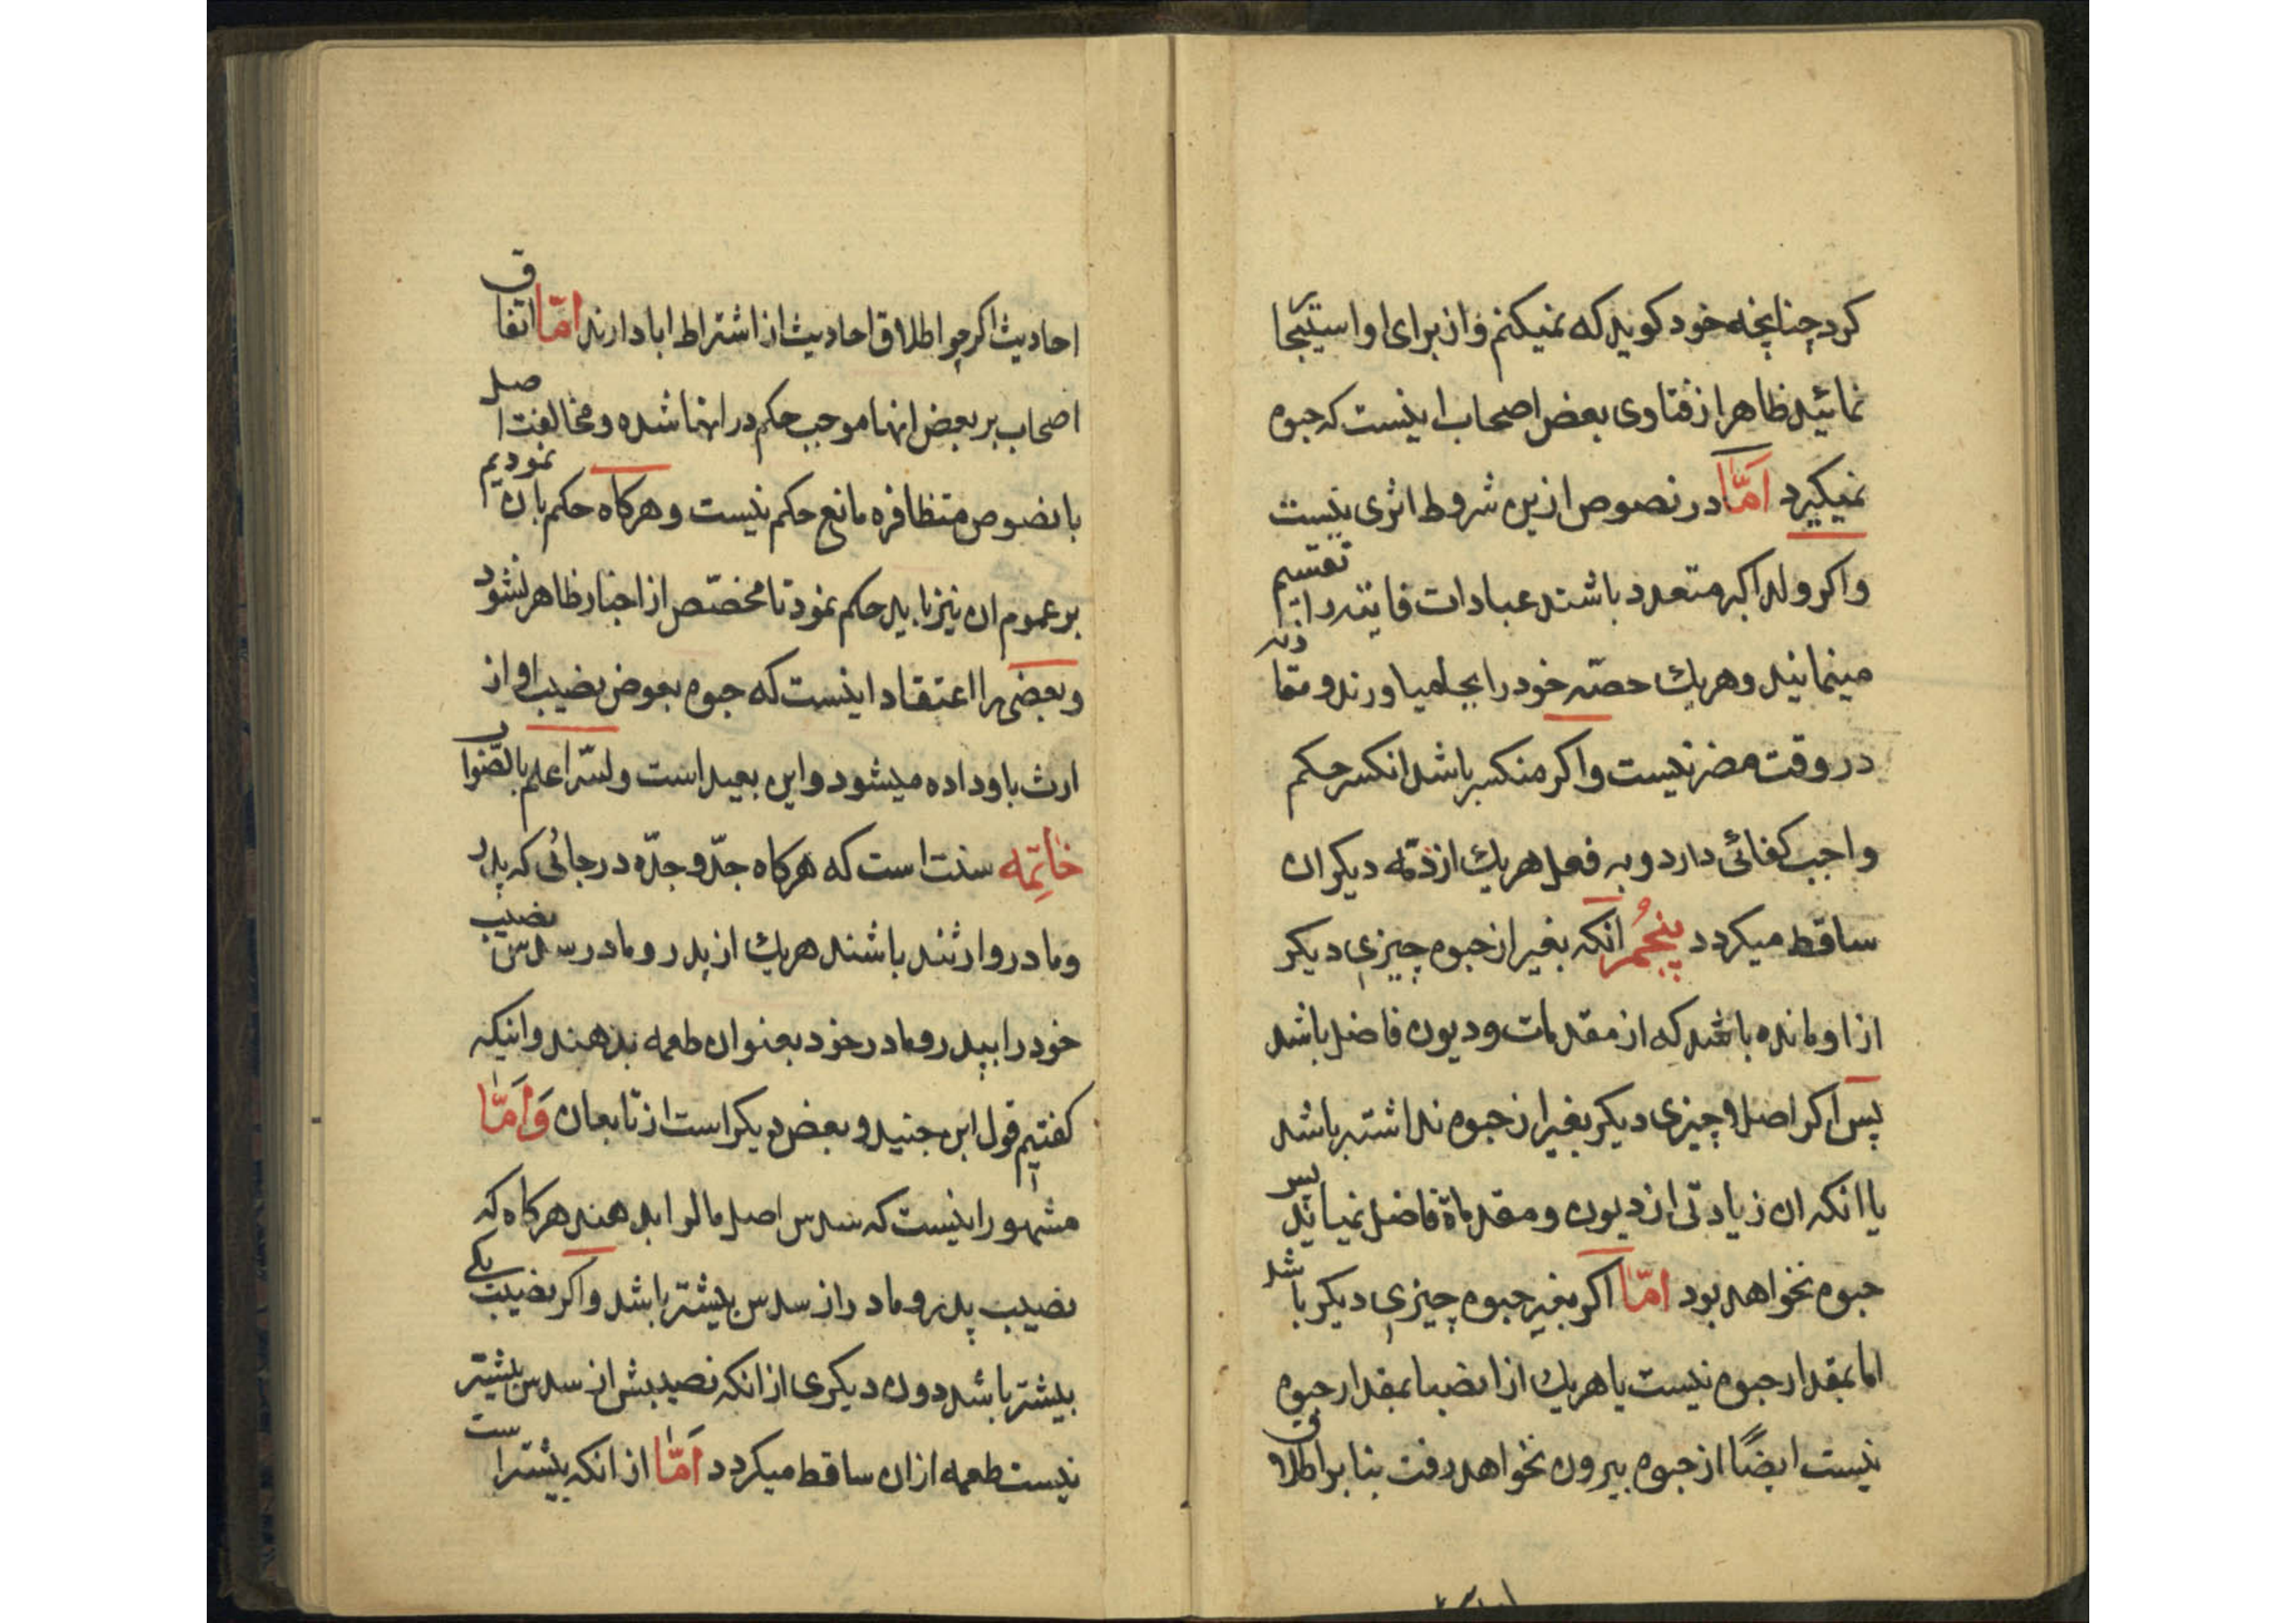 کرد چنانچه خود کوید که نمیکنم و از برای او استیجار
نمائید ظاهرا از فتاوی بعض اصحاب اینست که حبوه
نمیکیرد امّا در نصوص ازین شروط اثری نیست
واکر ولد اکبر متعدد باشند عبادات فایته را تقسیم
مینمایند و هریک حصّه خود را بجا میاورند و متقارنه
در وقت مضر نیست واکر منکسر باشد انکسر حکم
واجب کفائی دارد و به فعل هریک از ذمّه دیکران
ساقط میکردد پنجم انکه بغیر از حبوه چیزی دیکر
از او مانده باشد که از مقدمات و دیون فاضل باشد
پس اکر اصلا چیزی دیکر بغیر از حبوه نداشته باشد
یا انکه ان زیادتی از دیون و مقدماة فاضل نمیاید پس
حبوه نخواهد بود امّا اکر بغیر حبوه چیزی دیکر باشد
اما بمقدار حبوه نیست یا هریک از انصبا بمقدار حبوه
نیست ایضًا از حبوه بیرون نخواهد رفت بنا بر اطلاق
احادیث اکرچه اطلاق احادیث از اشتراط ابا دارند امّا اتفاق
اصحاب بر بعض انها موجب حکم در انها شده و مخالفت اصل
با نصوص متظافره مانع حکم نیست و هرکاه حکم بان نمودیم
بر عموم ان نیز باید حکم نمود تا مخصّص از اخبار ظاهر نشود
و بعضی را اعتقاد اینست که حبوه بعوض نصیب او از
ارث باو داده میشود و این بعید است ولله اعلم بالصّواب
خاتِمه سنت است که هرکاه جدّ و جدّه در جائی که پدر
و مادر وارثند باشند هریک از پدر و مادر سدس نصیب
خود را بپدر و مادر خود بعنوان طعمه بدهند و اینکه
کفتیم قول ابن جنید و بعض دیکر است از تابعان وَامّا
مشهور اینست که سدس اصل مال را بدهند هرکاه که
نصیب پدر و مادر از سدس بیشتر باشد واکر نصیب یکی
بیشتر باشد دون دیکری از انکه نصیبش از سدس بیشتر
نیست طعمه از ان ساقط میکردد اَمّا از انکه بیشتر است